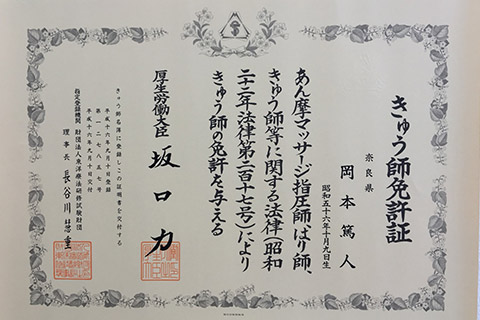 きゅう師免許証
奈良県
岡本篤人
昭和五十六年十月九日生
あん摩マッサージ指圧師、はり師、
きゅう師等に関する法律(昭和
二十二年法律第二百十七号)により
きゅう師の免許を与える
厚生労働大臣 坂口力
きゅう師名簿に登録しこの証明書を交付する
平成十六年九月十日登録
第一二七五七号
平成十六年九月十日交付
指定登録機関 財団法人東洋療法研修試験財団
理事長 長谷川慧重